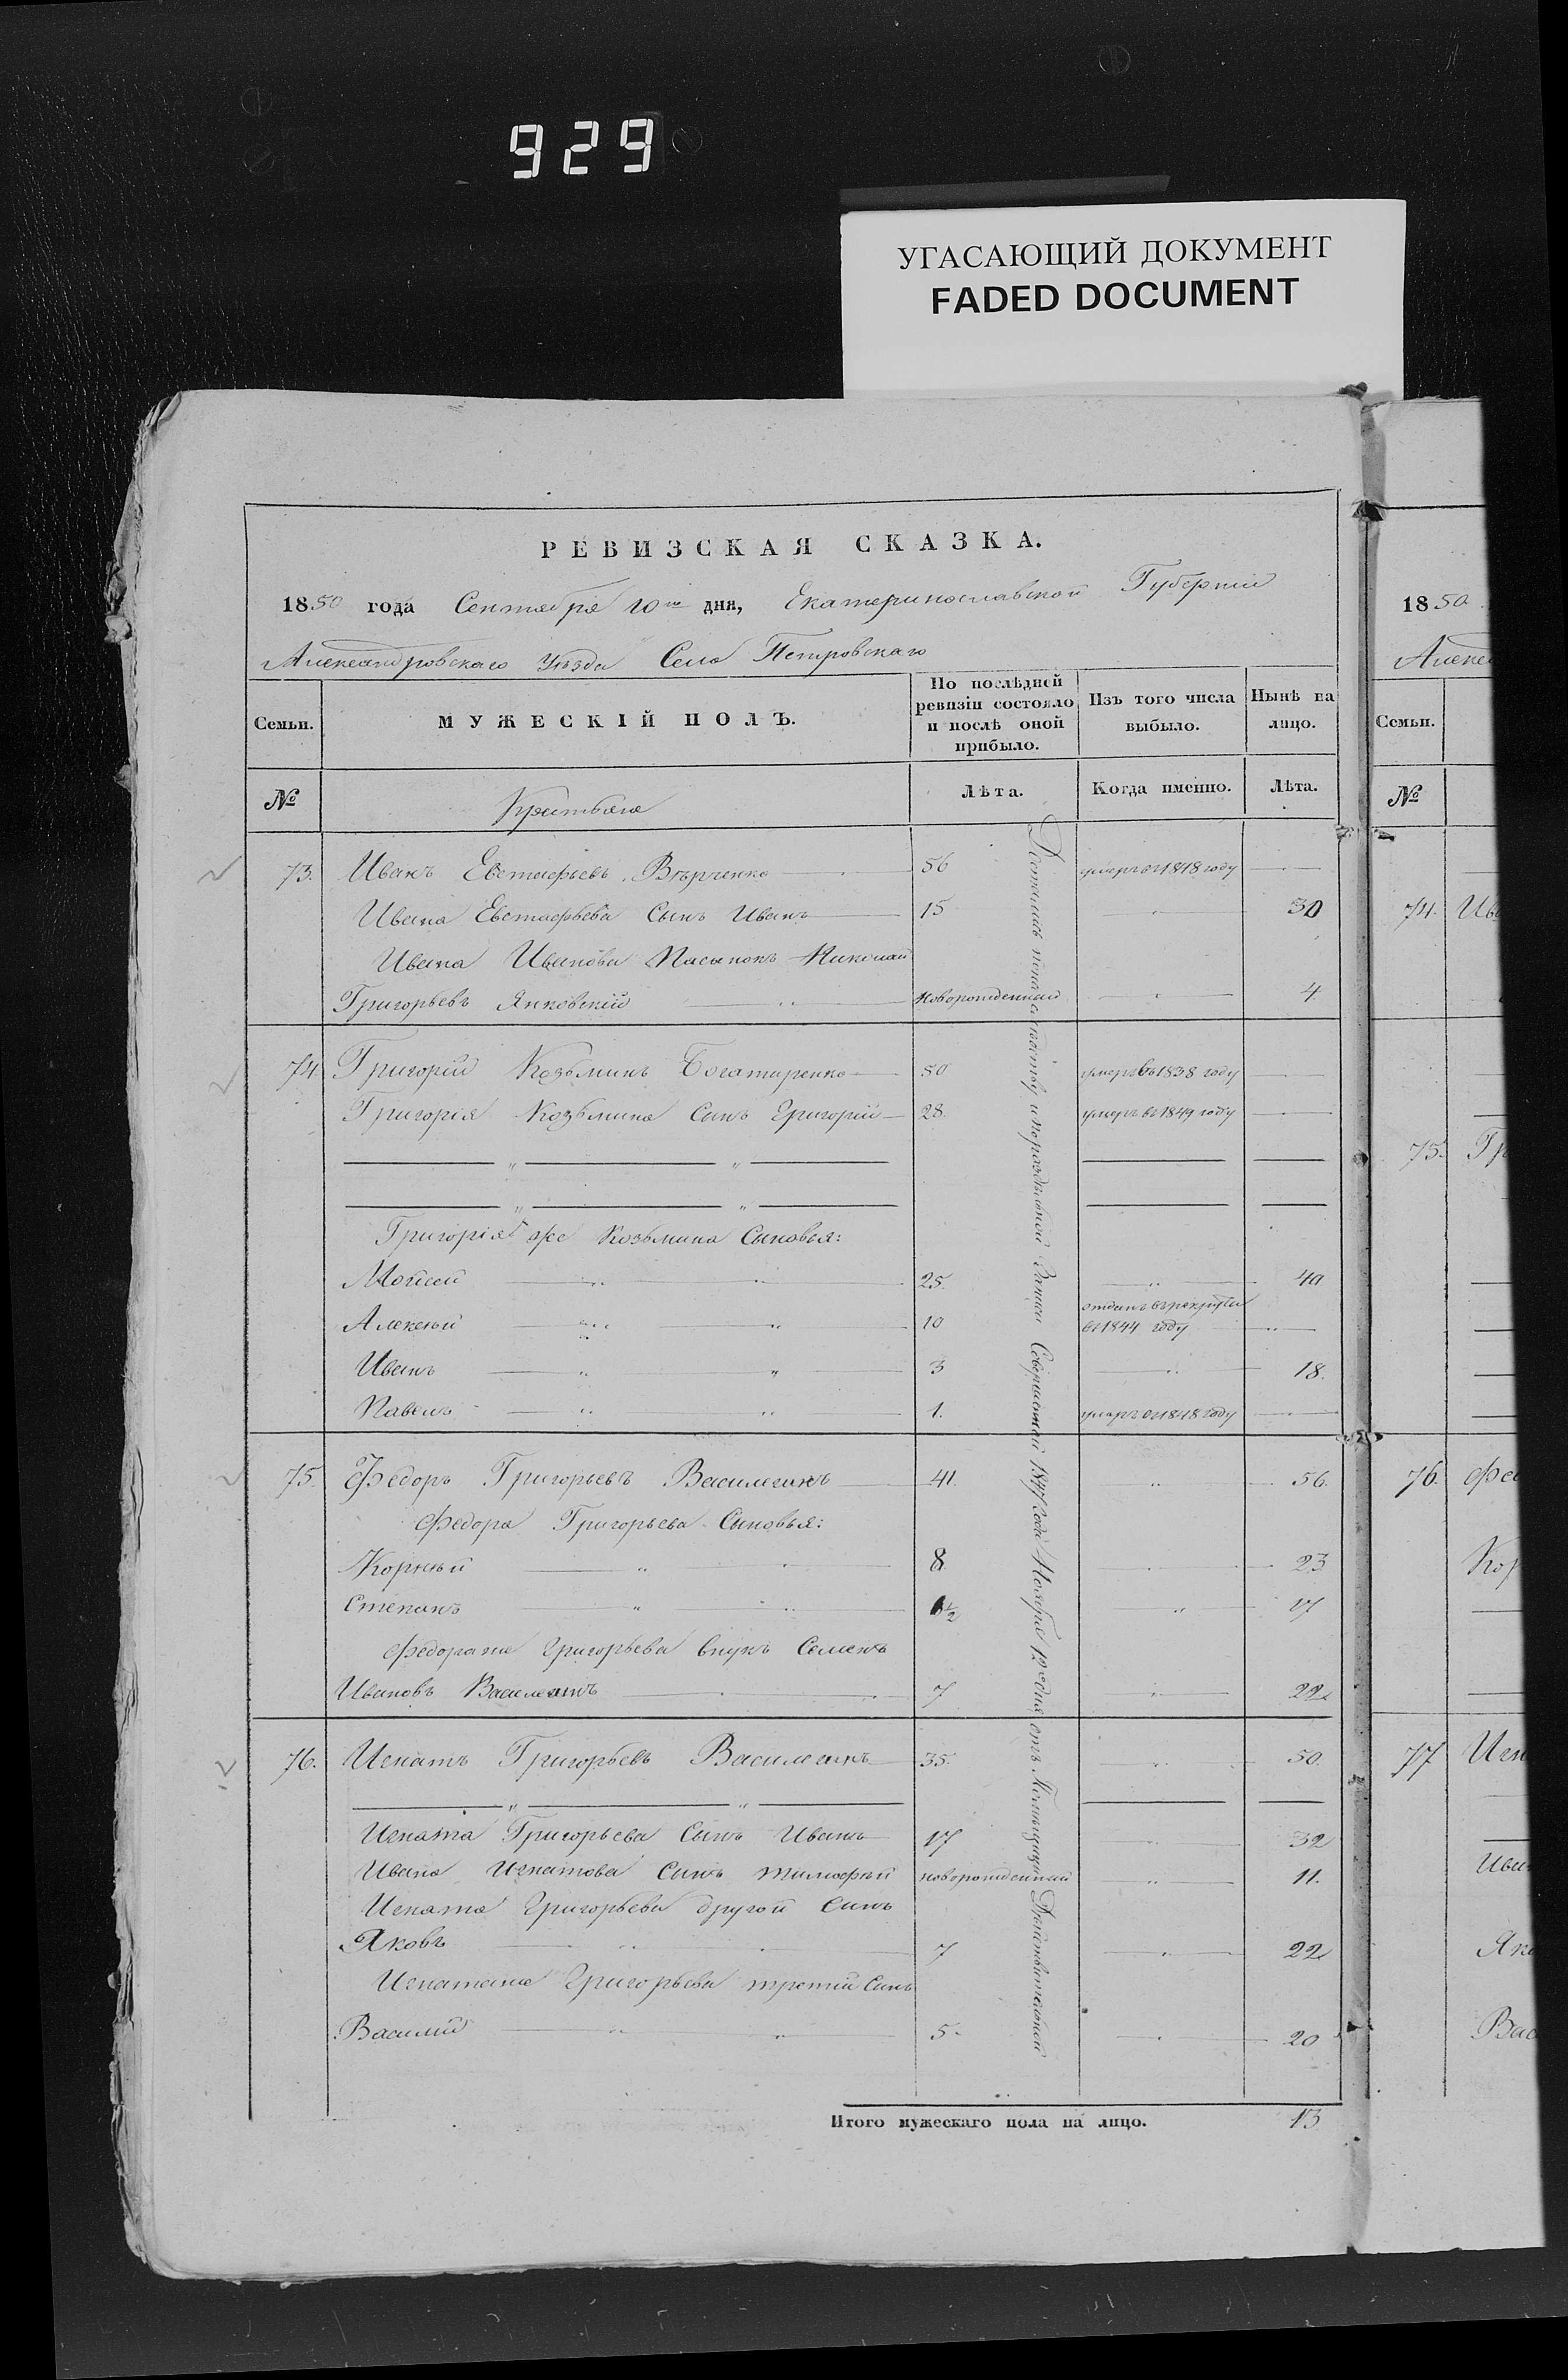 929
УГАСАЮЩИЙ ДОКУМЕНТ
FADED DOCUMENT
РЕВИЗСКАЯ СКАЗКА.
1850 года Сентября 10го дня, Екатеринославской Губерніи
Александровскаго Уѣзда Села Петровскаго
Семьи. МУЖЕСКІЙ ПОЛЪ. По послѣдней ревизіи состояло и послѣ оной прибыло. Изъ того числа выбыло. Нынѣ на лицо.
№ Крестьяне Лѣта. Когда именно. Лѣта.
73. Иванъ Евстафьевъ Вѣрченко 56 умеръ въ 1848 году
Ивана Евстафьева Сынъ Иванъ 15 30
Ивана Иванова Пасынокъ Николай
Григорьевъ Янковскій Новорожденный 4
74. Григорій Козьминъ Богатыренко 50 умеръ въ 1838 году
Григорія Козьмина Сынъ Григорій 28 умеръ въ 1849 году
Григорія же Козьмина Сыновья:
Мойсей 25. 40
Алексѣй 10 отданъ въ рекруты
въ 1844 году
Иванъ 3 18.
Павелъ 1. умеръ въ 1848 году
75. Федоръ Григорьевъ Василегинъ 41. 56.
Федора Григорьева Сыновья:
Корнѣй 8 23
Степанъ 1/2 17
Федора же Григорьева внукъ Семенъ
Ивановъ 7 22
76. Игнатъ Григорьевъ Василегинъ 35. 50.
Игната Григорьева Сынъ Иванъ 17 32
Ивана Игнатова Сынъ Тимофей новорожденный 11.
Игната Григорьева другой Сынъ
Яковъ 7 22
Игната же Григорьева третій Сынъ
Василій 5. 20
Достались по наслѣдству и по раздѣльной Записи Совершенной 1847 Года Ноября 12го дня отъ Помѣщицы Дѣйствительной
Итого мужескаго пола на лицо. 13
1850
Алекс
Семьи.
№
74. Ив
75. Гр
76. Фед
Кор
77 Игн
Ива
Як
Вас